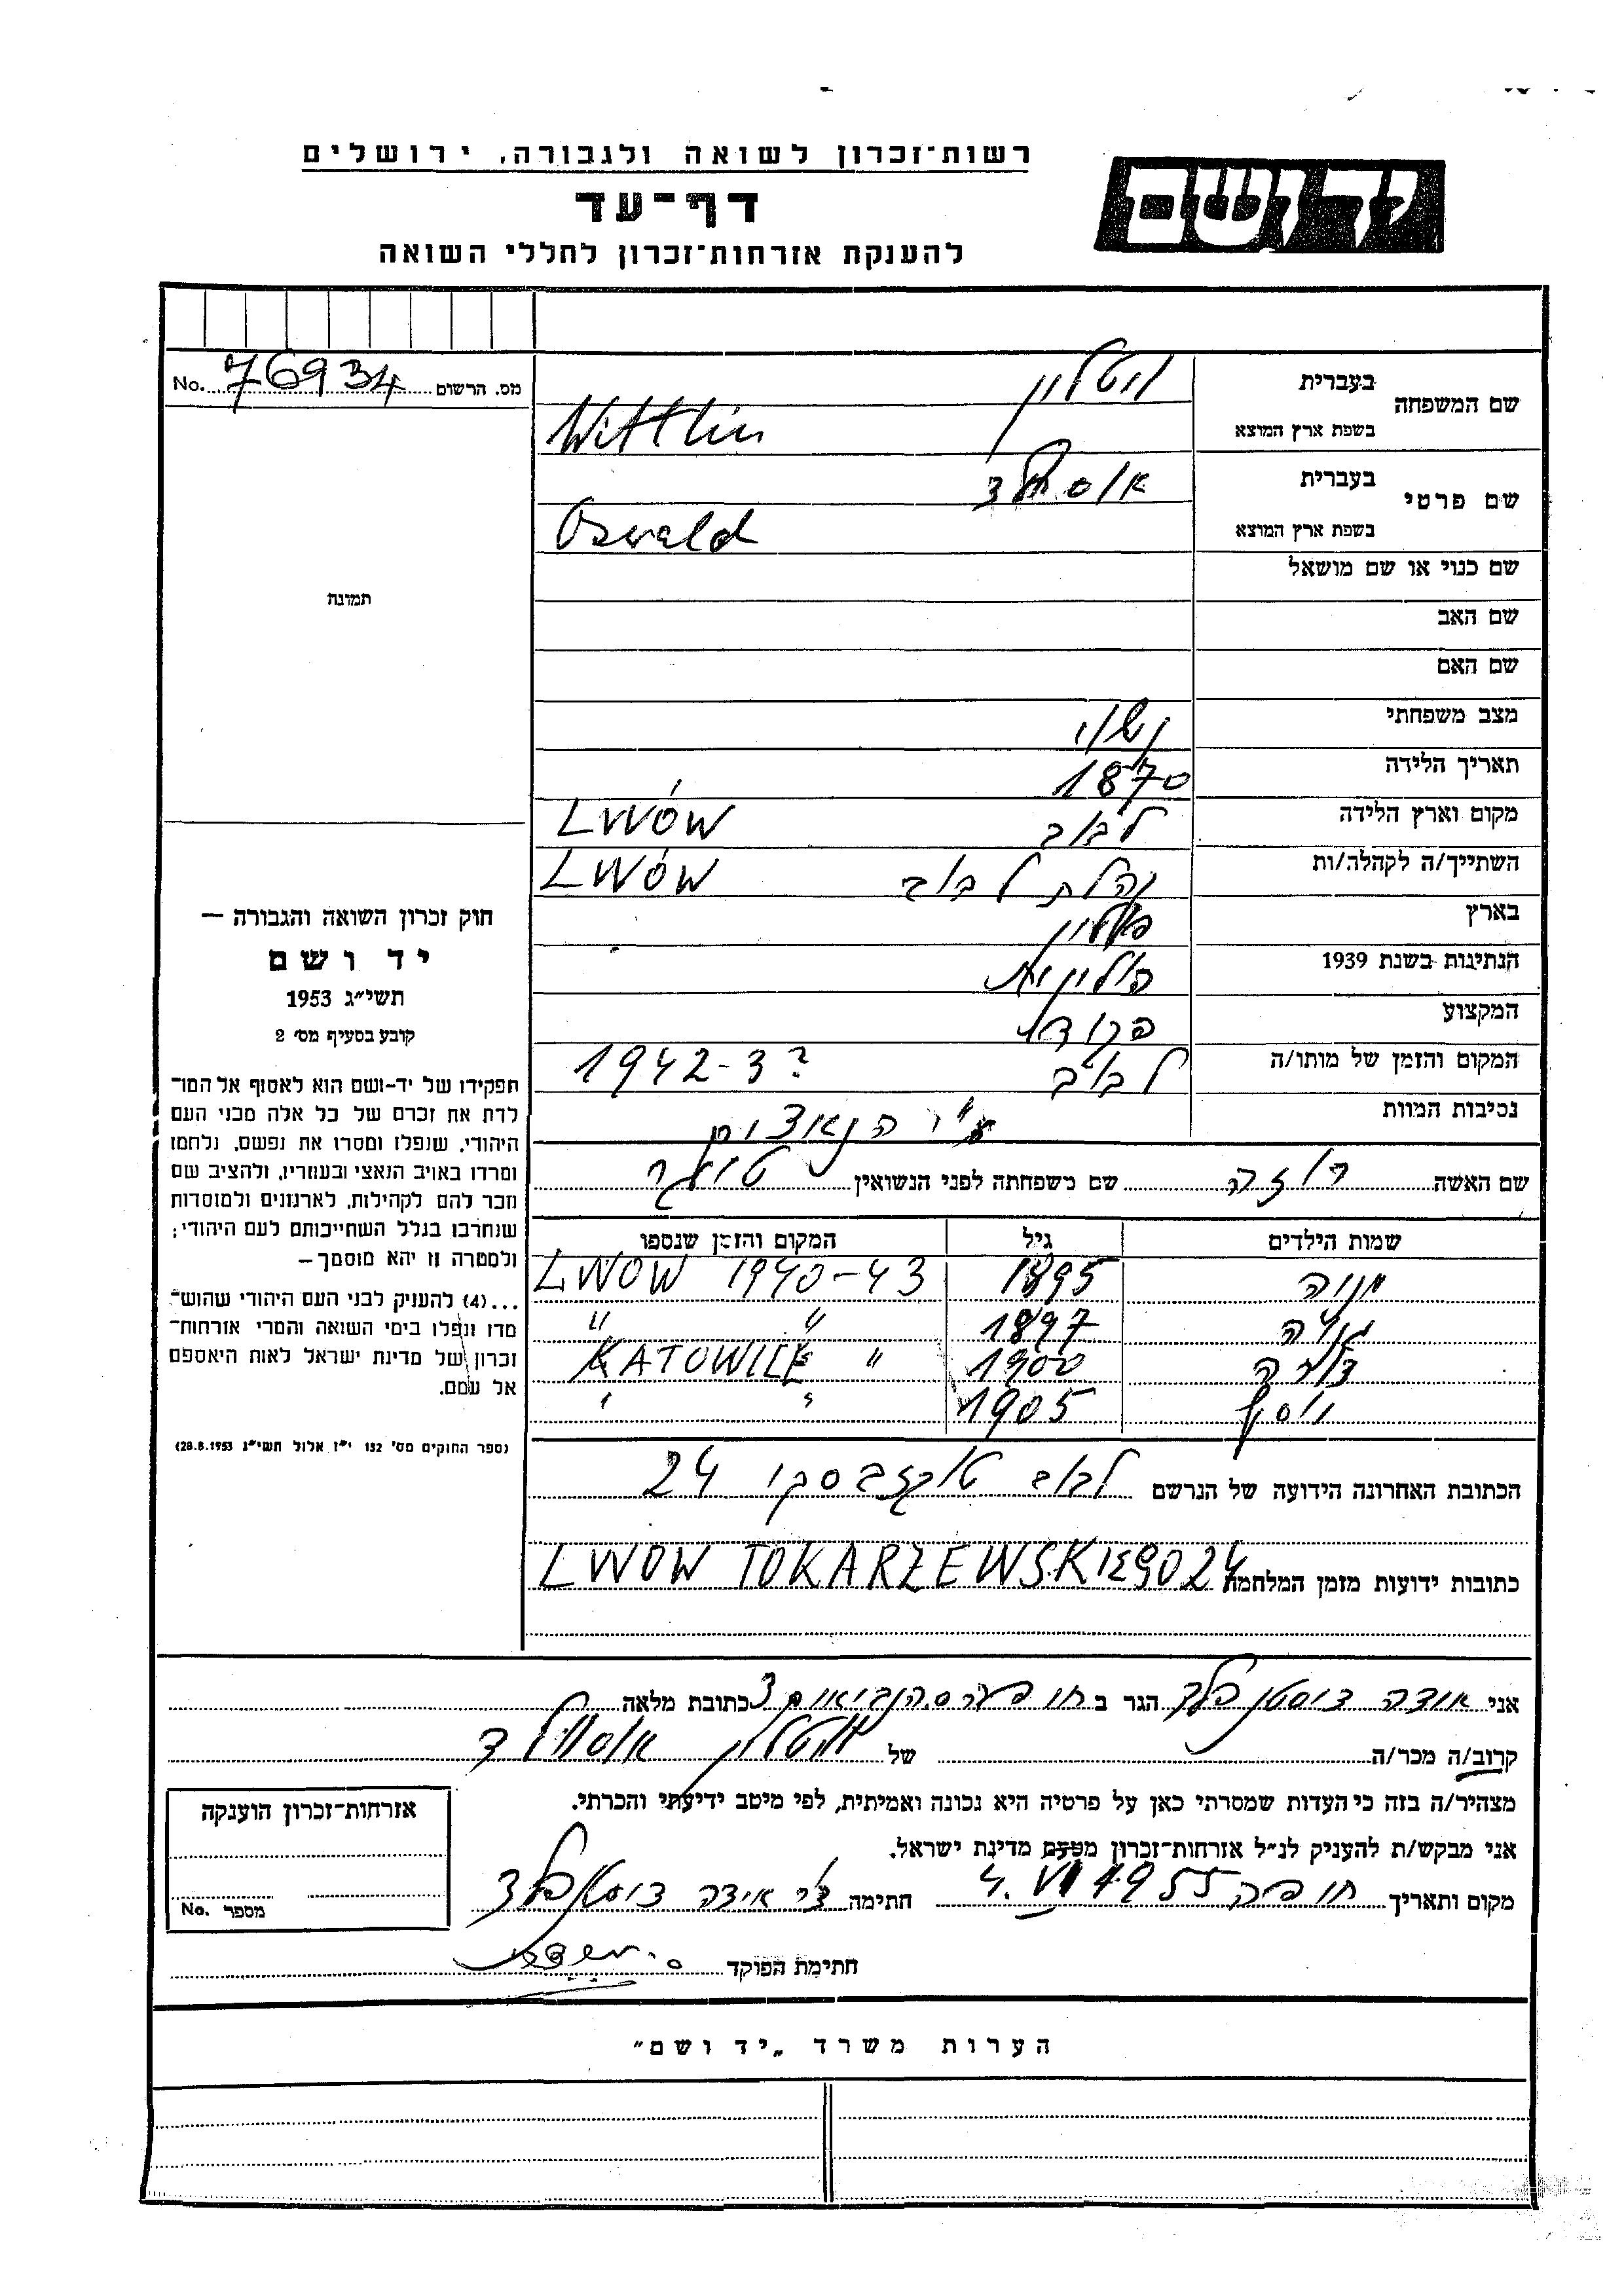 רשות־זכרון לשואה ולגבורה, ירושלים
יד ושם
דף־עד
להענקת אזרחות־זכרון לחללי השואה
מס. הרשום 76934 No.
שם המשפחה
בעברית ויטלין
בשפת ארץ המוצא Wittlin
שם פרטי
בעברית
בשפת ארץ המוצא Oswald
שם כנוי או שם מושאל
שם האב
שם האם
מצב משפחתי נשוי
תאריך הלידה 1870
מקום וארץ הלידה לבוב LWÓW
השתייך/ה לקהלה/ות קהלת לבוב LWÓW
בארץ פולין
הנתינות בשנת 1939 פולנית
המקצוע
המקום והזמן של מותו/ה לבוב 1942-3?
נסיבות המוות ע"י הנאצים
שם האשה רוזה שם משפחתה לפני הנשואין
שמות הילדים גיל המקום והזמן שנספו
מניה 1895 LWOW 1940-43
1897 " "
1900 KATOWICE "
יוסף 1905 " "
הכתובת האחרונה הידועה של הנרשם לבוב טוקזבסקי 24
כתובות ידועות מזמן המלחמה LWOW TOKARZEWSKIEGO 24
תמונה
חוק זכרון השואה והגבורה —
יד ושם
תשי"ג 1953
קובע בסעיף מס' 2
תפקידו של יד־ושם הוא לאסוף אל המו־
לדת את זכרם של כל אלה מבני העם
היהודי, שנפלו ומסרו את נפשם, נלחמו
ומרדו באויב הנאצי ובעוזריו, ולהציב שם
וזכר להם לקהילות, לארגונים ולמוסדות
שנחרבו בגלל השתייכותם לעם היהודי;
ולמטרה זו יהא מוסמך —
...(4) להענית לבני העם היהודי שהוש־
מדו ונפלו בימי השואה והמרי אזרחות־
זכרון של מדינת ישראל לאות היאספם
אל עמם.
(ספר החוקים מס' 132 י"ז אלול תשי"ג 28.8.1953)
אני אידה הגר ב חיפה כתובת מלאה
קרוב/ה מכר/ה של ויטלין אוסולד
מצהיר/ה בזה כי העדות שמסרתי כאן על פרטיה היא נכונה ואמיתית, לפי מיטב ידיעתי והכרתי.
אני מבקש/ת להעניק לנ"ל אזרחות־זכרון מטעם מדינת ישראל.
מקום ותאריך חיפה 4.VI 1955 חתימה אידה
חתימת הפוקד
אזרחות־זכרון הוענקה
מספר No.
הערות משרד „יד ושם"